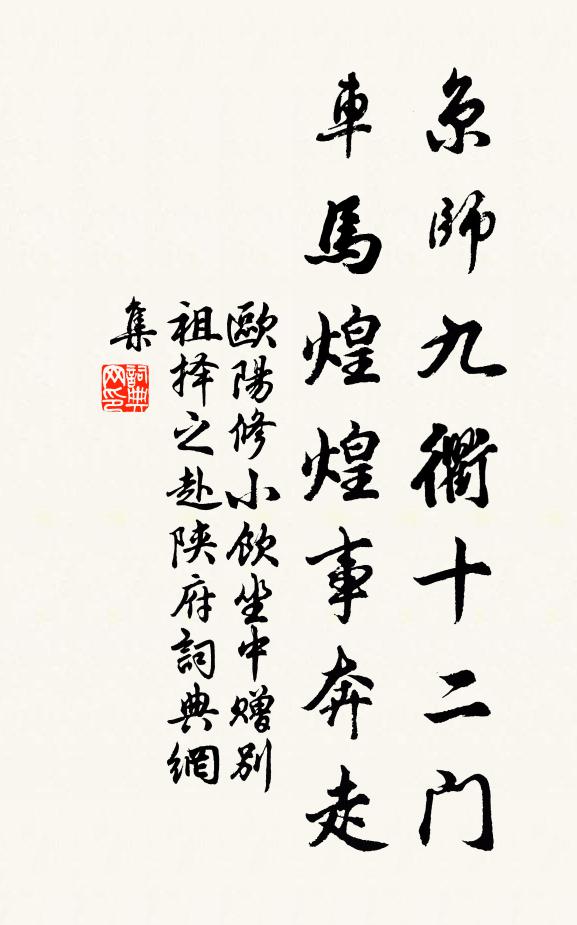 京師九衢十二门
車馬煌煌事奔走
歐陽修小飲坐中赠别
祖择之赴陕府詞典網
集
詞典
网印